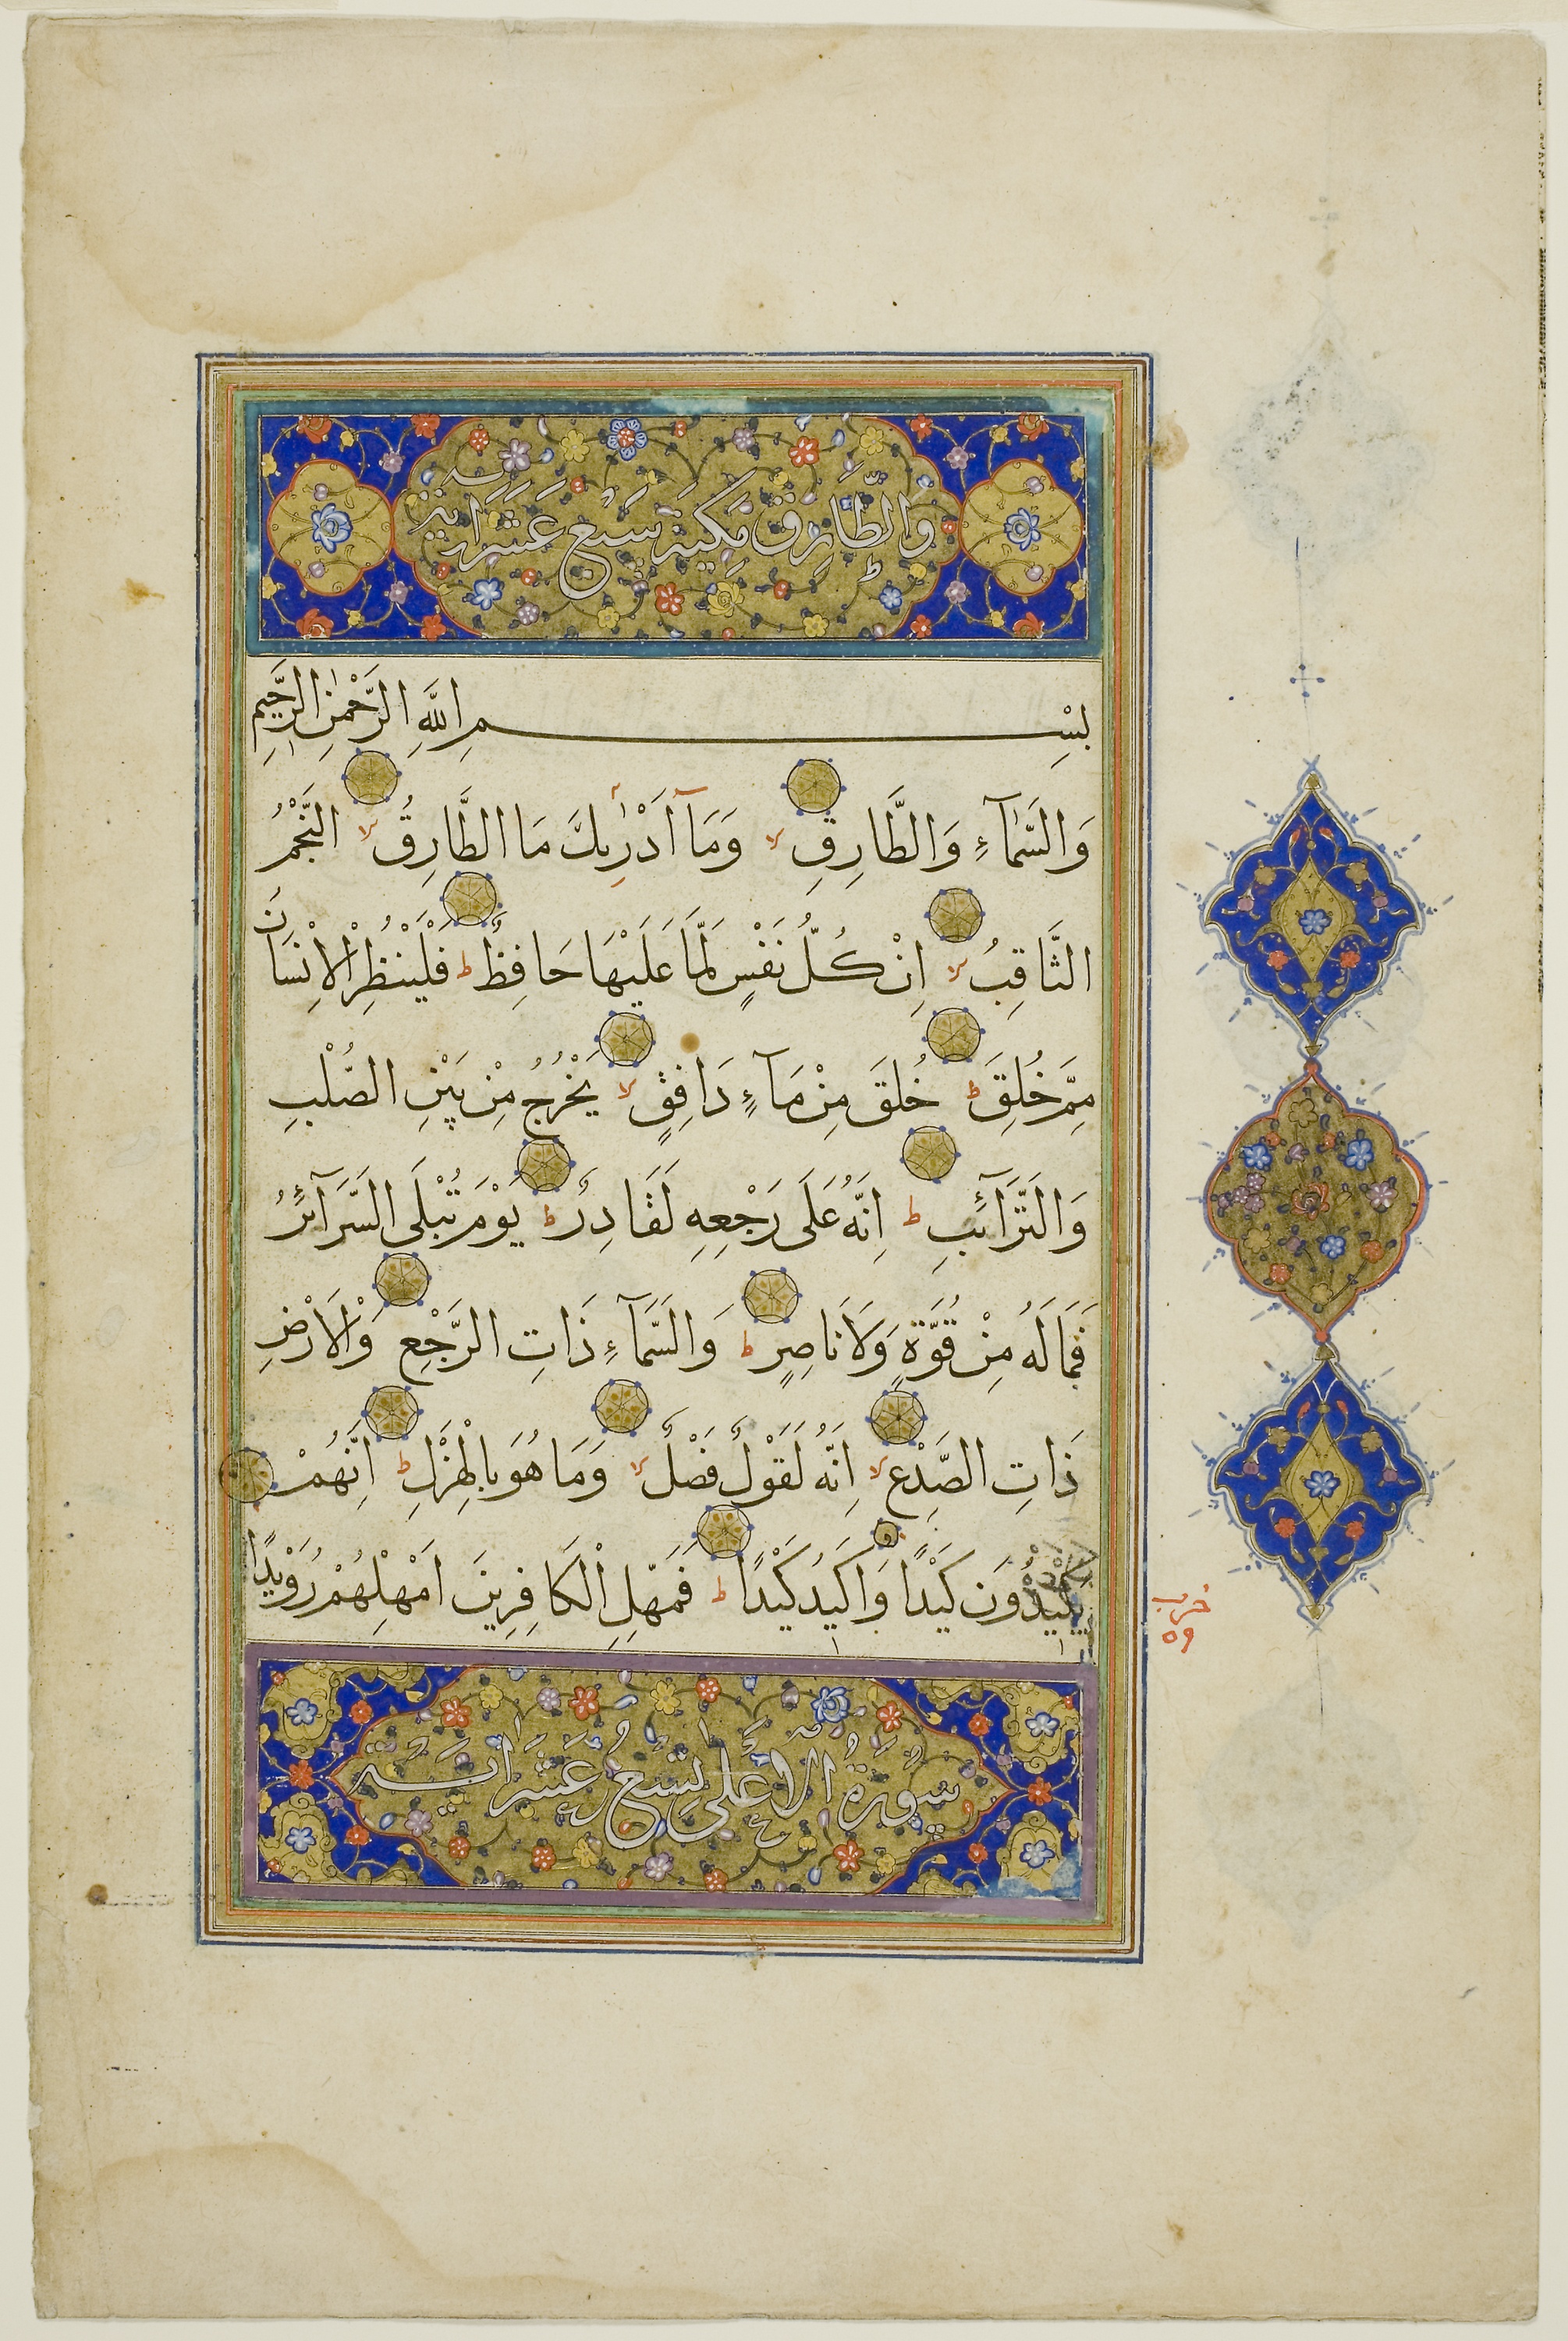 والطَّارِقِ مَكِّيَة سَبْعَ عَشَرَ اٰيَة
بِسْمِ اللَّهِ الرَّحْمٰنِ الرَّحِيمِ
وَالسَّمَآءِ وَالطَّارِقِ ۙ وَمَآ اَدْرٰىكَ مَا الطَّارِقُ ۙ النَّجْمُ
الثَّاقِبُ ۙ اِنْ كُلُّ نَفْسٍ لَمَّا عَلَيْهَا حَافِظٌ ط فَلْيَنْظُرِ الْاِنْسَانُ
مِمَّ خُلِقَ ط خُلِقَ مِنْ مَآءٍ دَافِقٍ ۙ يَخْرُجُ مِنْ بَيْنِ الصُّلْبِ
وَالتَّرَآئِبِ ط اِنَّهُ عَلَى رَجْعِهِ لَقَادِرٌ ط يَوْمَ تُبْلَى السَّرَآئِرُ
فَمَا لَهُ مِنْ قُوَّةٍ وَلَا نَاصِرٍ ط وَالسَّمَآءِ ذَاتِ الرَّجْعِ وَالْاَرْضِ
ذَاتِ الصَّدْعِ ۙ اِنَّهُ لَقَوْلٌ فَصْلٌ ۙ وَمَا هُوَ بِالْهَزْلِ ط اِنَّهُمْ
يَكِيدُونَ كَيْدًا وَاَكِيدُ كَيْدًا ط فَمَهِّلِ الْكَافِرِينَ اَمْهِلْهُمْ رُوَيْدًا
حزب
٥٩
سُورَةُ الْاَعْلٰى تِسْعَ عَشَرَ اٰيَة